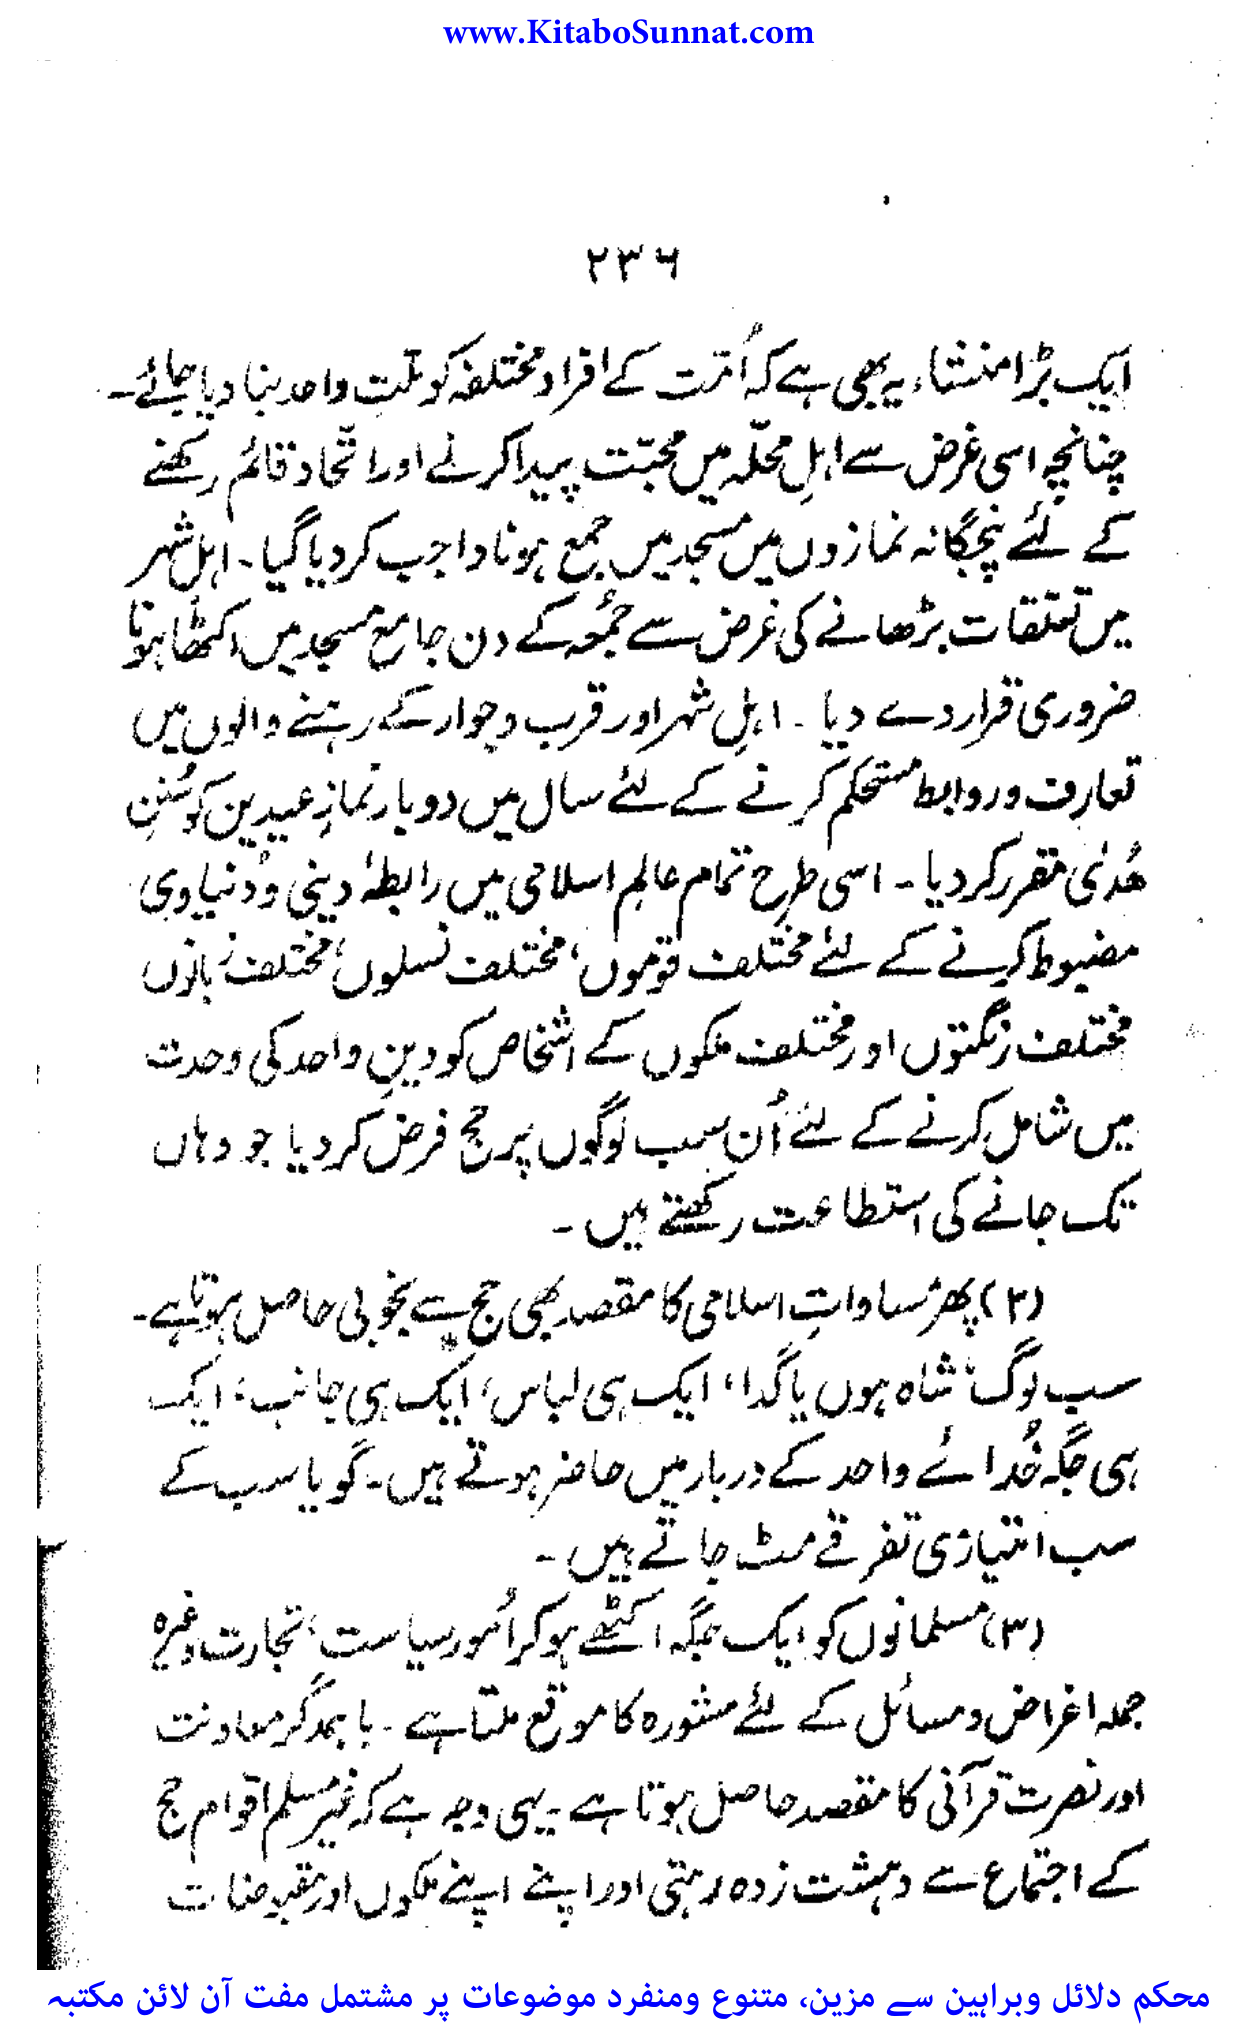 www.KitaboSunnat.com
۲۳۶
ایک بڑا منشاء یہ بھی ہے کہ اُمّت کے افراد مختلفہ کو ملّتِ واحد بنا دیا جائے۔
چنانچہ اسی غرض سے اہلِ محلّہ میں محبّت پیدا کرنے اور اتّحاد قائم رکھنے
کے لئے پنجگانہ نمازوں میں مسجد میں جمع ہونا واجب کر دیا گیا۔ اہل شہر
میں تعلقات بڑھانے کی غرض سے جُمعہ کے دن جامع مسجد میں اکٹھا ہونا
ضروری قرار دے دیا۔ اہلِ شہر اور قرب و جوار کے رہنے والوں میں
تعارف و روابط مستحکم کرنے کے لئے سال میں دو بار نمازِ عیدین کو سُننِ
ھُدیٰ مقرر کر دیا۔ اسی طرح تمام عالمِ اسلامی میں رابطۂ دینی و دُنیاوی
مضبوط کرنے کے لئے مختلف قوموں، مختلف نسلوں، مختلف زبانوں
مختلف رنگتوں اور مختلف ملکوں کے اشخاص کو دینِ واحد کی وحدت
میں شامل کرنے کے لئے اُن سب لوگوں پر حج فرض کر دیا جو وہاں
تک جانے کی استطاعت رکھتے ہیں۔
(۲) پھر مساواتِ اسلامی کا مقصد بھی حج سے بخوبی حاصل ہوتا ہے۔
سب لوگ، شاہ ہوں یا گدا، ایک ہی لباس، ایک ہی جانب، ایک
ہی جگہ خُدائے واحد کے دربار میں حاضر ہوتے ہیں۔ گویا سب کے
سب امتیازی تفرقے مٹ جاتے ہیں۔
(۳) مسلمانوں کو ایک جگہ اکٹھے ہو کر اُمور سیاست، تجارت وغیرہ
جملہ اغراض و مسائل کے لئے مشورہ کا موقع ملتا ہے۔ باہمدگر معاونت
اور نصرت قرآنی کا مقصد حاصل ہوتا ہے۔ یہی وجہ ہے کہ غیر مسلم اقوام حج
کے اجتماع سے دہشت زدہ رہتی اور اپنے اپنے ملکوں اور مقبوضات
محکم دلائل وبراہین سے مزین، متنوع ومنفرد موضوعات پر مشتمل مفت آن لائن مکتبہ